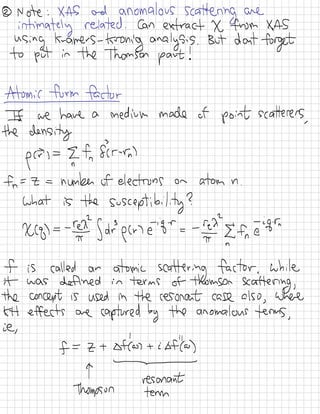 ② Note: XAS and anomalous scattering are
intimately related. Can extract χ from XAS
using Kramers-Kronig analysis. But don't forget
to put in the Thomson part!
Atomic form factor
If we have a medium made of point scatterers,
the density
ρ(r⃗) = Σ_n f_n δ(r-r_n)
f_n = Z = number of electrons on atom n.
What is the susceptibility?
χ(q) = - r_e λ²/π ∫dr³ ρ(r) e^{-iq·r} = - r_e λ²/π Σ_n f_n e^{-iq·r_n}
f is called an atomic scattering factor, while
it was defined in terms of Thomson scattering,
the concept is used in the resonant case also, where
effects are captured by the anomalous terms,
ie,
f = Z + Δf'(ω) + i Δf''(ω)
↑
resonant
Thompson term